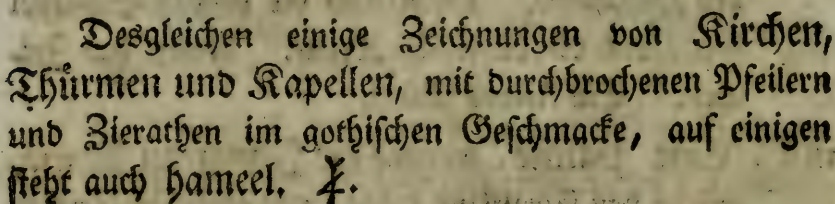 Desgleichen einige Zeichnungen von Kirchen,
Thürmen und Kapellen, mit durchbrochenen Pfeilern
und Zierathen im gothischen Geschmacke, auf einigen
steht auch hameel.